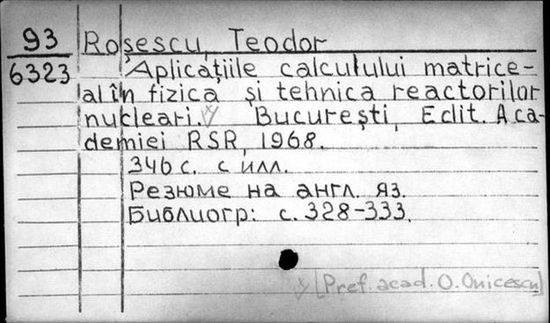 93 Roşescu, Teodor
6323 Aplicaţiile calculului matrice-
al în fizica şi tehnica reactorilor
nucleari. Bucureşti, Edit. Aca-
demiei RSR, 1968.
346 с. с илл.
Резюме на англ. яз.
Библиогр: с. 328-333.
[Pref. acad. O. Onicescu]